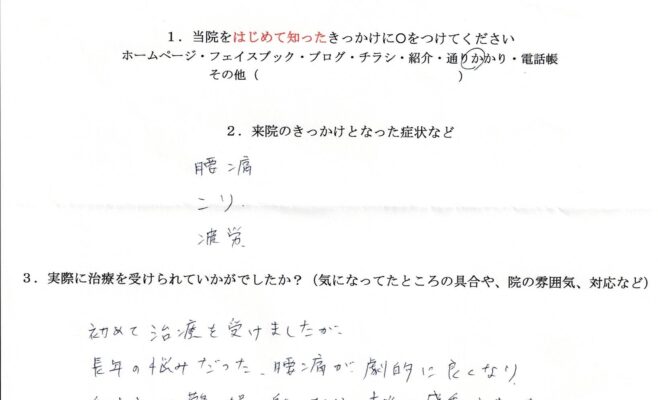 １．当院をはじめて知ったきっかけに○をつけてください
ホームページ・フェイスブック・ブログ・チラシ・紹介・通りかかり・電話帳
その他（　　　　　　　　　　　　　　　）
２．来院のきっかけとなった症状など
腰痛
こり
疲労
３．実際に治療を受けられていかがでしたか？（気になってたところの具合や、院の雰囲気、対応など）
初めて治療を受けましたが、
長年の悩みだった、腰痛が劇的に良くなり